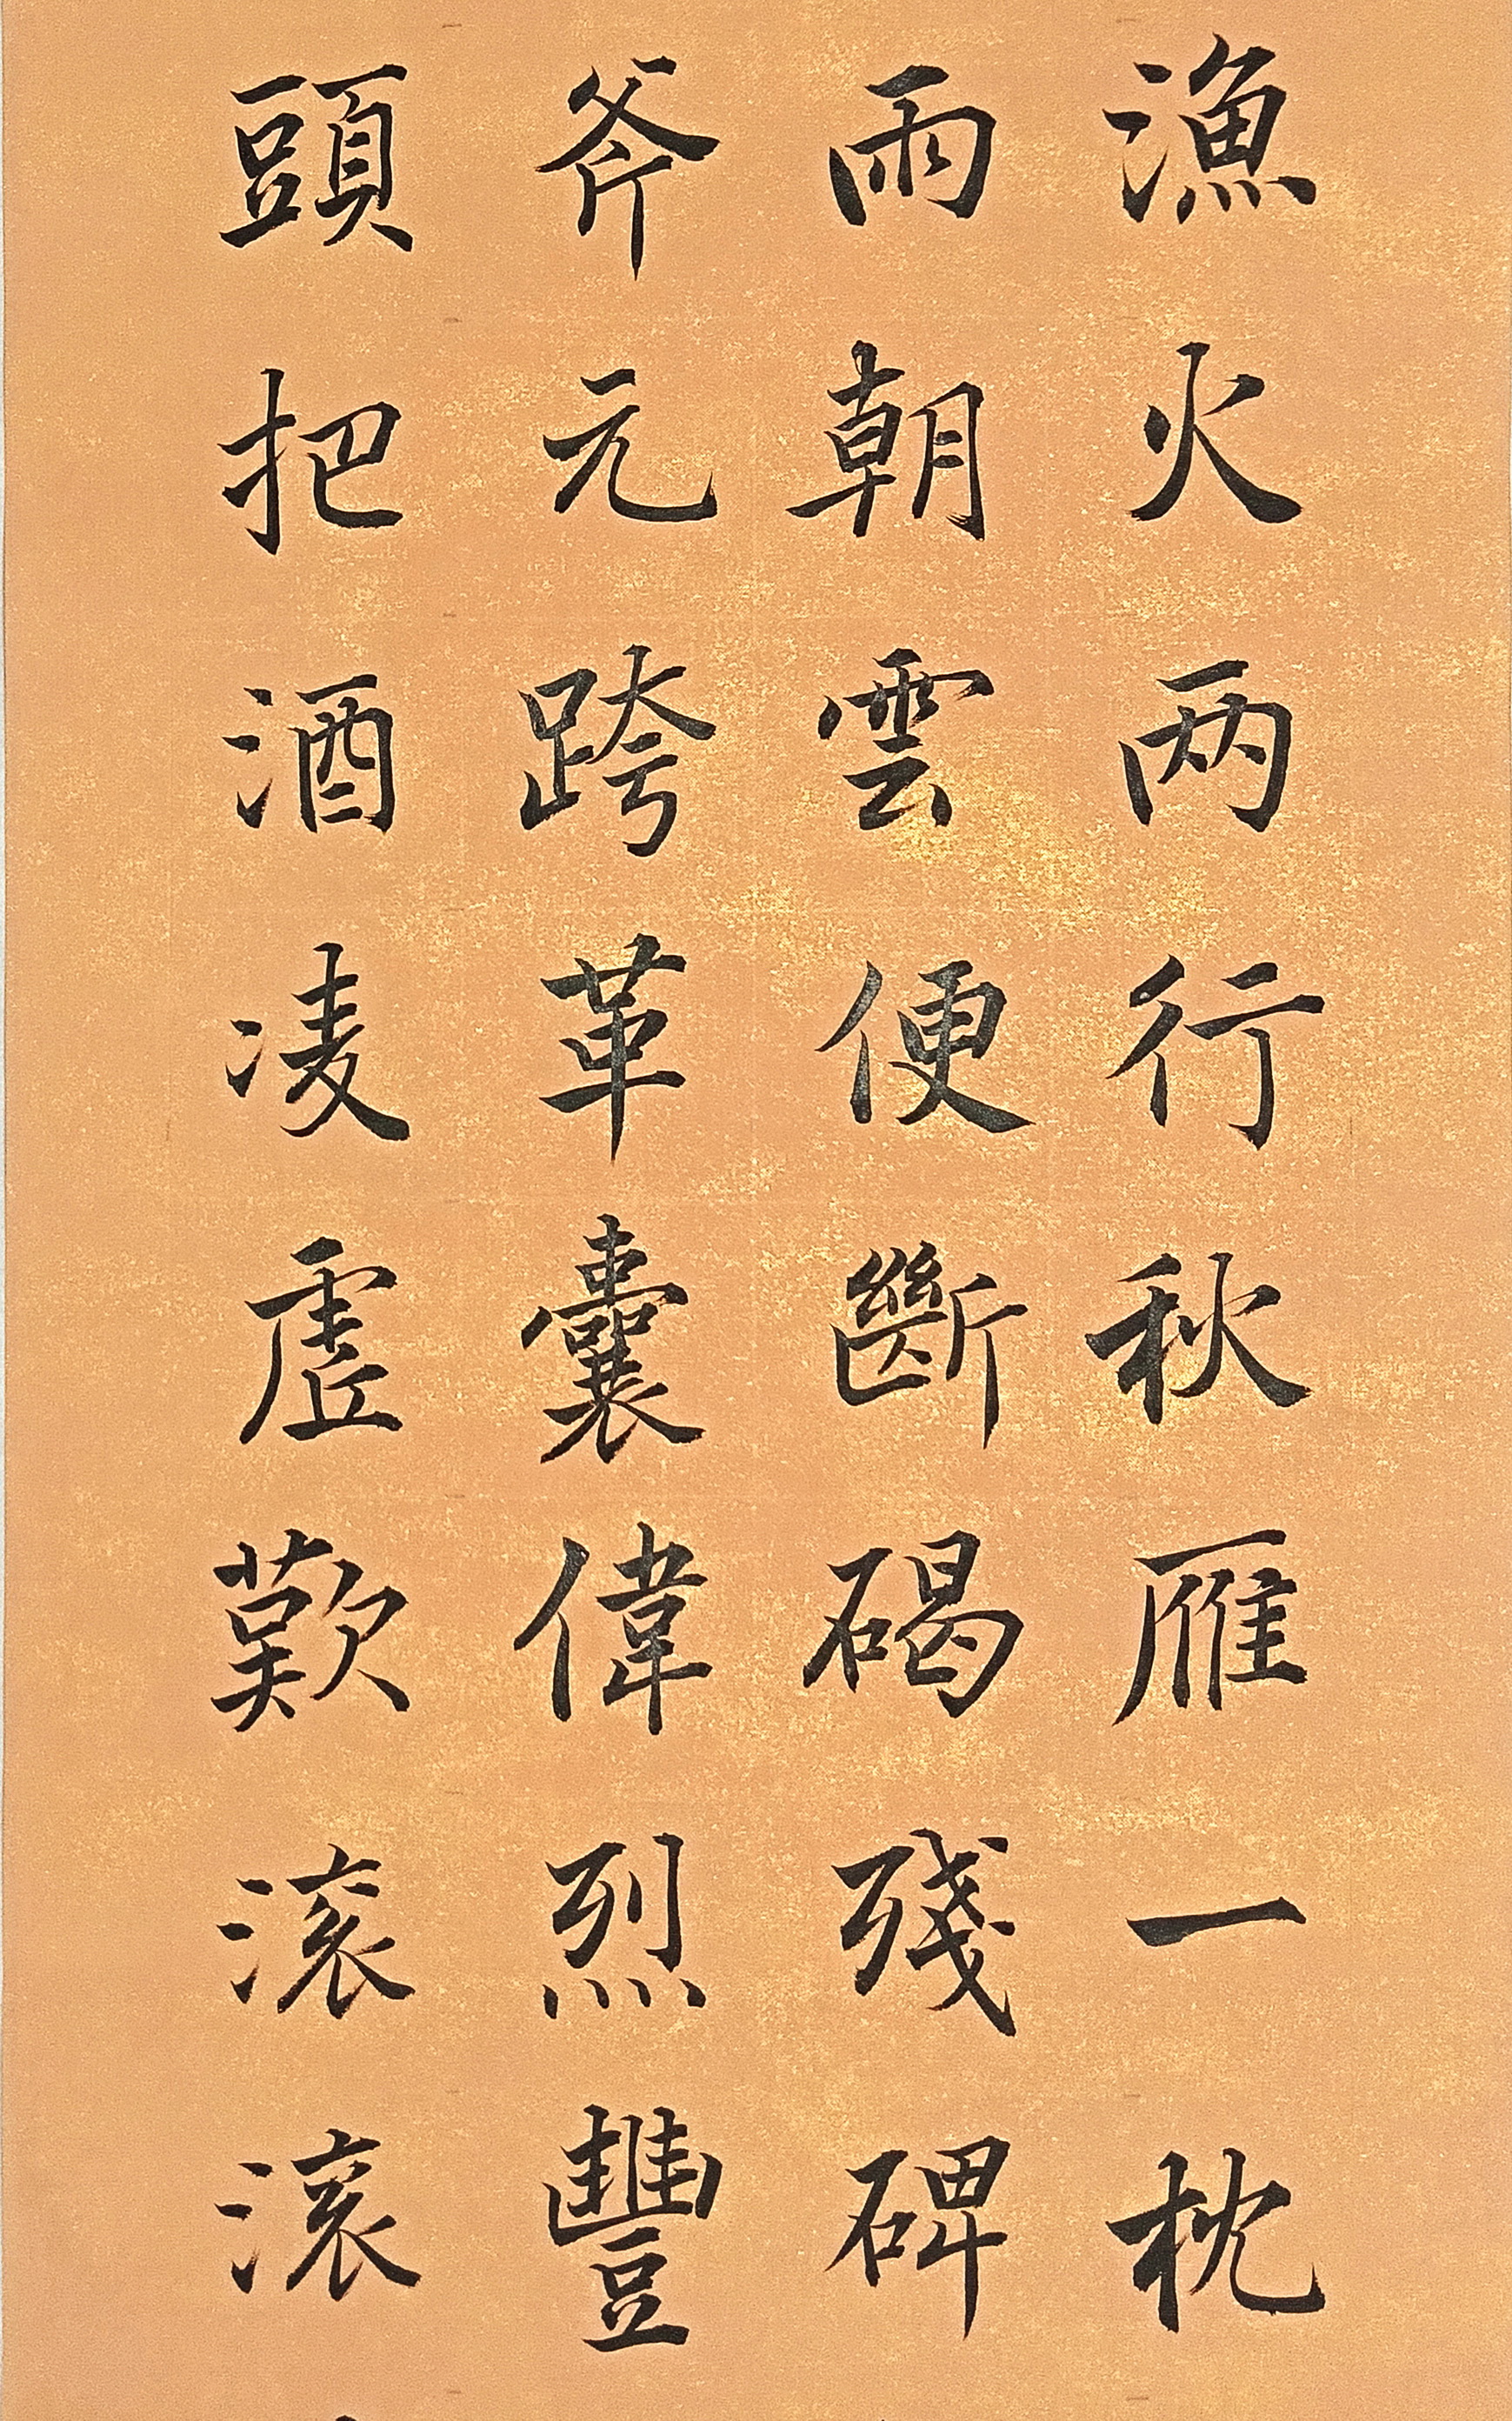 漁火两行秋雁一枕
雨朝雲便斷碣殘碑
斧元跨革囊偉烈豐
頭把酒凌虛歎滚滚